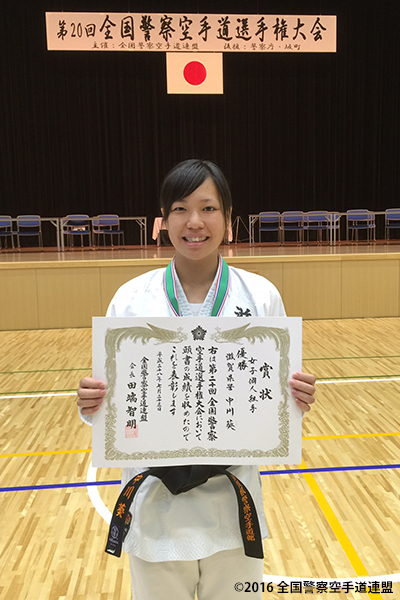 第20回 全国警察空手道選手権大会
主催:全国警察空手道連盟 後援:警察庁・
賞状
女子個人組手
優勝
滋賀県警 中川 葵
右は第二十回全国警察
空手道選手権大会において
頭書の成績を収めたので
これを表彰します
平成二十八年七月二十三日
全国警察空手道連盟
会長 田端智明
©2016 全国警察空手道連盟